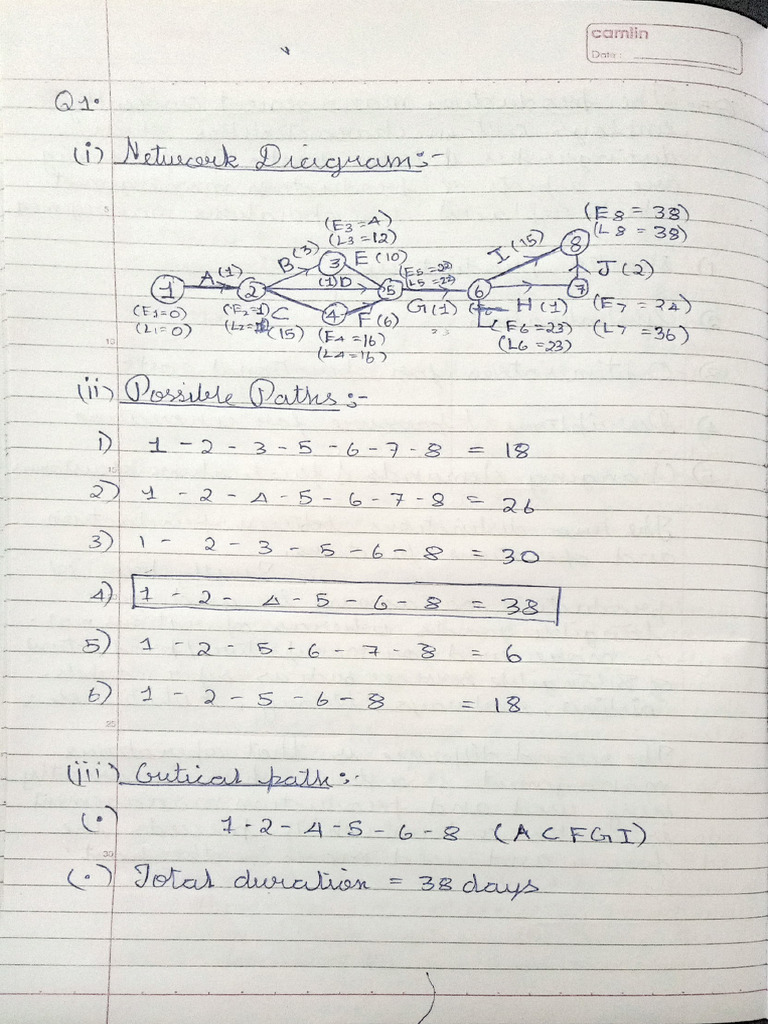 camlin
Date :
Q1.
(i) Network Diagram:-
(E3=4)
(L3=12)
(E8 = 38)
(L8 = 38)
A(1) B(3) 3 E(10) I(15) 8
1 2 (1)D 5 (E5=22) 6 7 J(2)
(L5=22)
(E1=0)
(L1=0)
(E2=1) C (15)
4 F(6) G(1) H(1)
(E4=16)
(L4=16)
(E6=23)
(L6=23)
(E7=24)
(L7=36)
(ii) Possible Paths:-
1) 1 - 2 - 3 - 5 - 6 - 7 - 8 = 18
2) 1 - 2 - 4 - 5 - 6 - 7 - 8 = 26
3) 1 - 2 - 3 - 5 - 6 - 8 = 30
4) 1 - 2 - 4 - 5 - 6 - 8 = 38
5) 1 - 2 - 5 - 6 - 7 - 8 = 6
6) 1 - 2 - 5 - 6 - 8 = 18
(iii) Critical path:-
(•) 1 - 2 - 4 - 5 - 6 - 8 (ACFGI)
(•) Total duration = 38 days